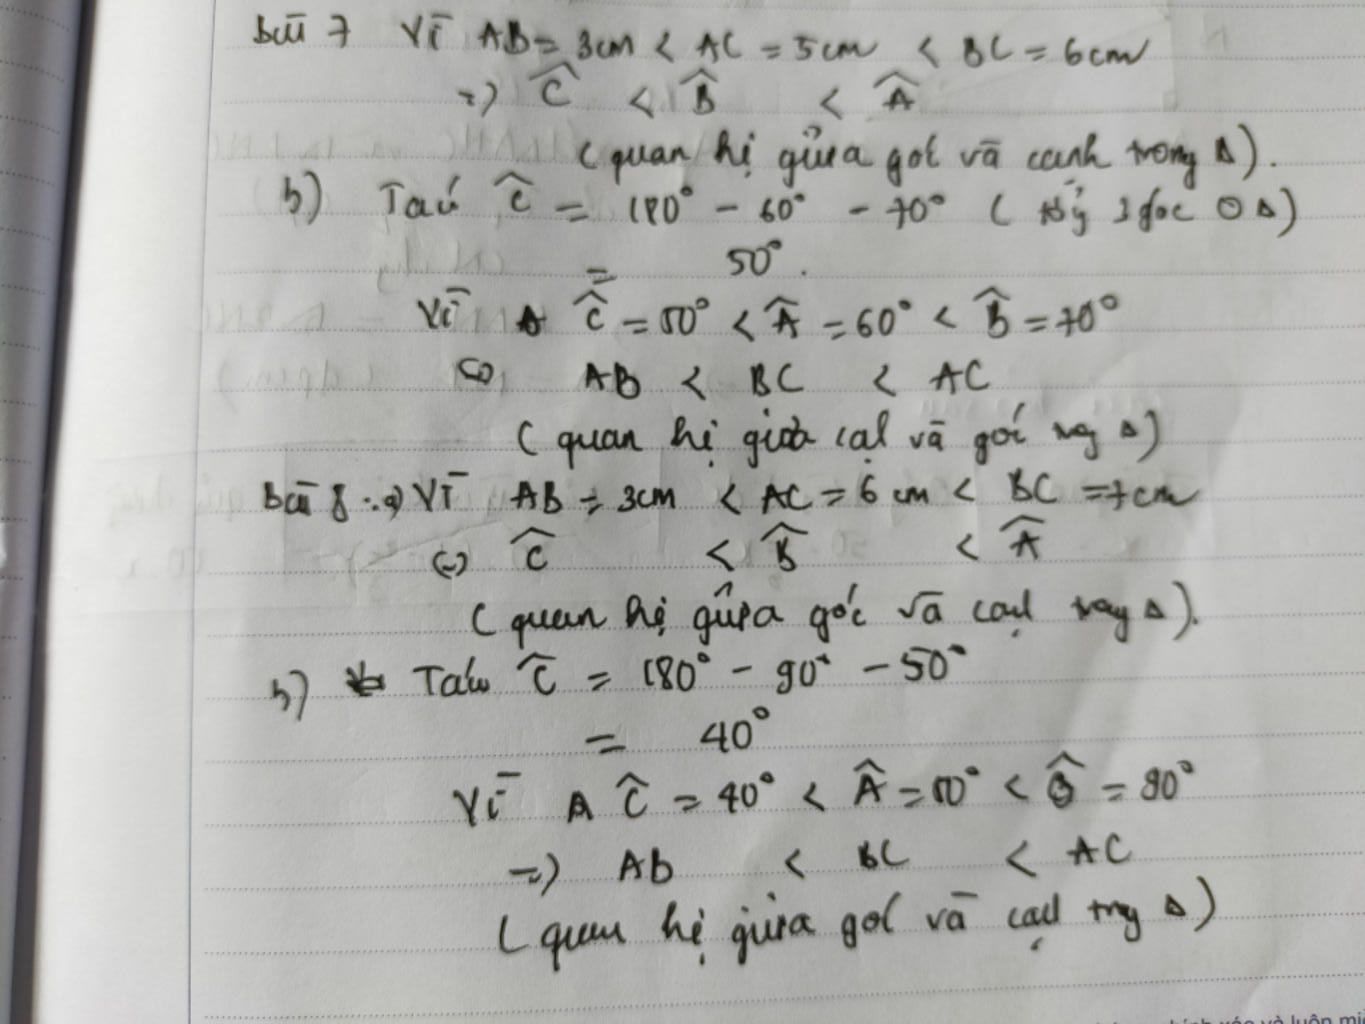 bài 7 Vì AB = 3cm < AC = 5cm < BC = 6cm
=> Ĉ < B̂ < Â
(quan hệ giữa gol và cạnh trong Δ).
b) Ta có Ĉ = 180° - 60° - 70° ( 3 góc Δ)
= 50°.
Vì Ĉ = 50° < Â = 60° < B̂ = 70°
<=> AB < BC < AC
(quan hệ giữa cạl và góc Δ)
bài 8 : a) Vì AB = 3cm < AC = 6 cm < BC = 7cm
<=> Ĉ < B̂ < Â
(quan hệ giữa góc và Δ).
b) Ta có Ĉ = 180° - 90° - 50°
= 40°
Vì Ĉ = 40° < Â = 50° < B̂ = 90°
=> Ab < BC < AC
(quan hệ giữa gol và Δ)